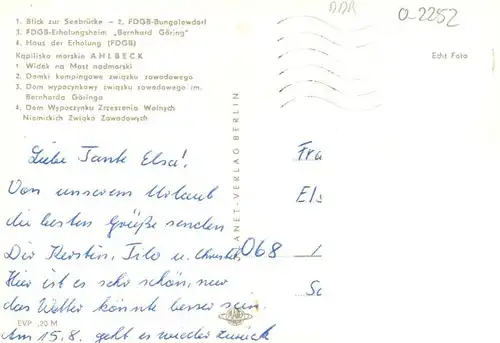 1. Blick zur Seebrücke – 2. FDGB-Bungalowdorf
3. FDGB-Erholungsheim „Bernhard Göring"
4. Haus der Erholung (FDGB)
Kąpilisko morskie AHLBECK
1 Widek na Most nadmorski
2. Domki kempingowe związku zawodowego
3. Dom wypocynkowy związku zawodowego im.
Bernharda Göringa
4. Dom Wypoczynku Zrzeszenia Wolnych
Niemickich Zwiąko Zawodowych
DDR
0-2252
Echt Foto
PLANET-VERLAG BERLIN
Liebe Tante Elsa!
Von unserem Urlaub
die besten Grüße senden
Dir Kerstin, Tilo u. Christel
Hier ist es sehr schön, nur
das Wetter könnte besser sein.
Am 15.8. geht es wieder zurück
Fra
Els
068
Sc
EVP ,20 M